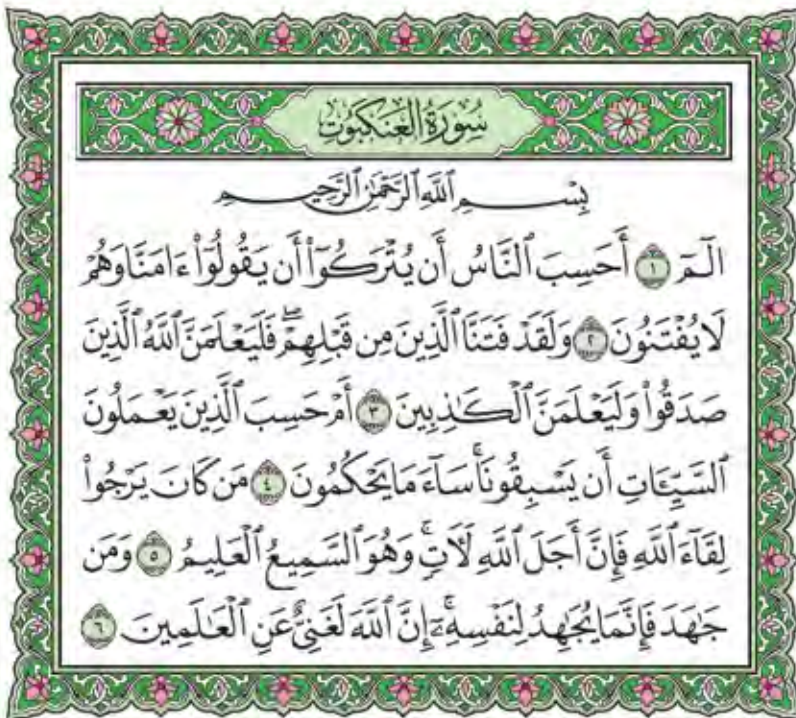 سُورَةُ الْعَنكَبُوتِ
بِسْمِ ٱللَّهِ ٱلرَّحْمَٰنِ ٱلرَّحِيمِ
الٓمٓ ١ أَحَسِبَ ٱلنَّاسُ أَن يُتْرَكُوٓا۟ أَن يَقُولُوٓا۟ ءَامَنَّا وَهُمْ
لَا يُفْتَنُونَ ٢ وَلَقَدْ فَتَنَّا ٱلَّذِينَ مِن قَبْلِهِمْ ۖ فَلَيَعْلَمَنَّ ٱللَّهُ ٱلَّذِينَ
صَدَقُوا۟ وَلَيَعْلَمَنَّ ٱلْكَـٰذِبِينَ ٣ أَمْ حَسِبَ ٱلَّذِينَ يَعْمَلُونَ
ٱلسَّيِّـَٔاتِ أَن يَسْبِقُونَا ۚ سَآءَ مَا يَحْكُمُونَ ٤ مَن كَانَ يَرْجُوا۟
لِقَآءَ ٱللَّهِ فَإِنَّ أَجَلَ ٱللَّهِ لَـَٔاتٍ ۚ وَهُوَ ٱلسَّمِيعُ ٱلْعَلِيمُ ٥ وَمَن
جَـٰهَدَ فَإِنَّمَا يُجَـٰهِدُ لِنَفْسِهِۦٓ ۚ إِنَّ ٱللَّهَ لَغَنِىٌّ عَنِ ٱلْعَـٰلَمِينَ ٦